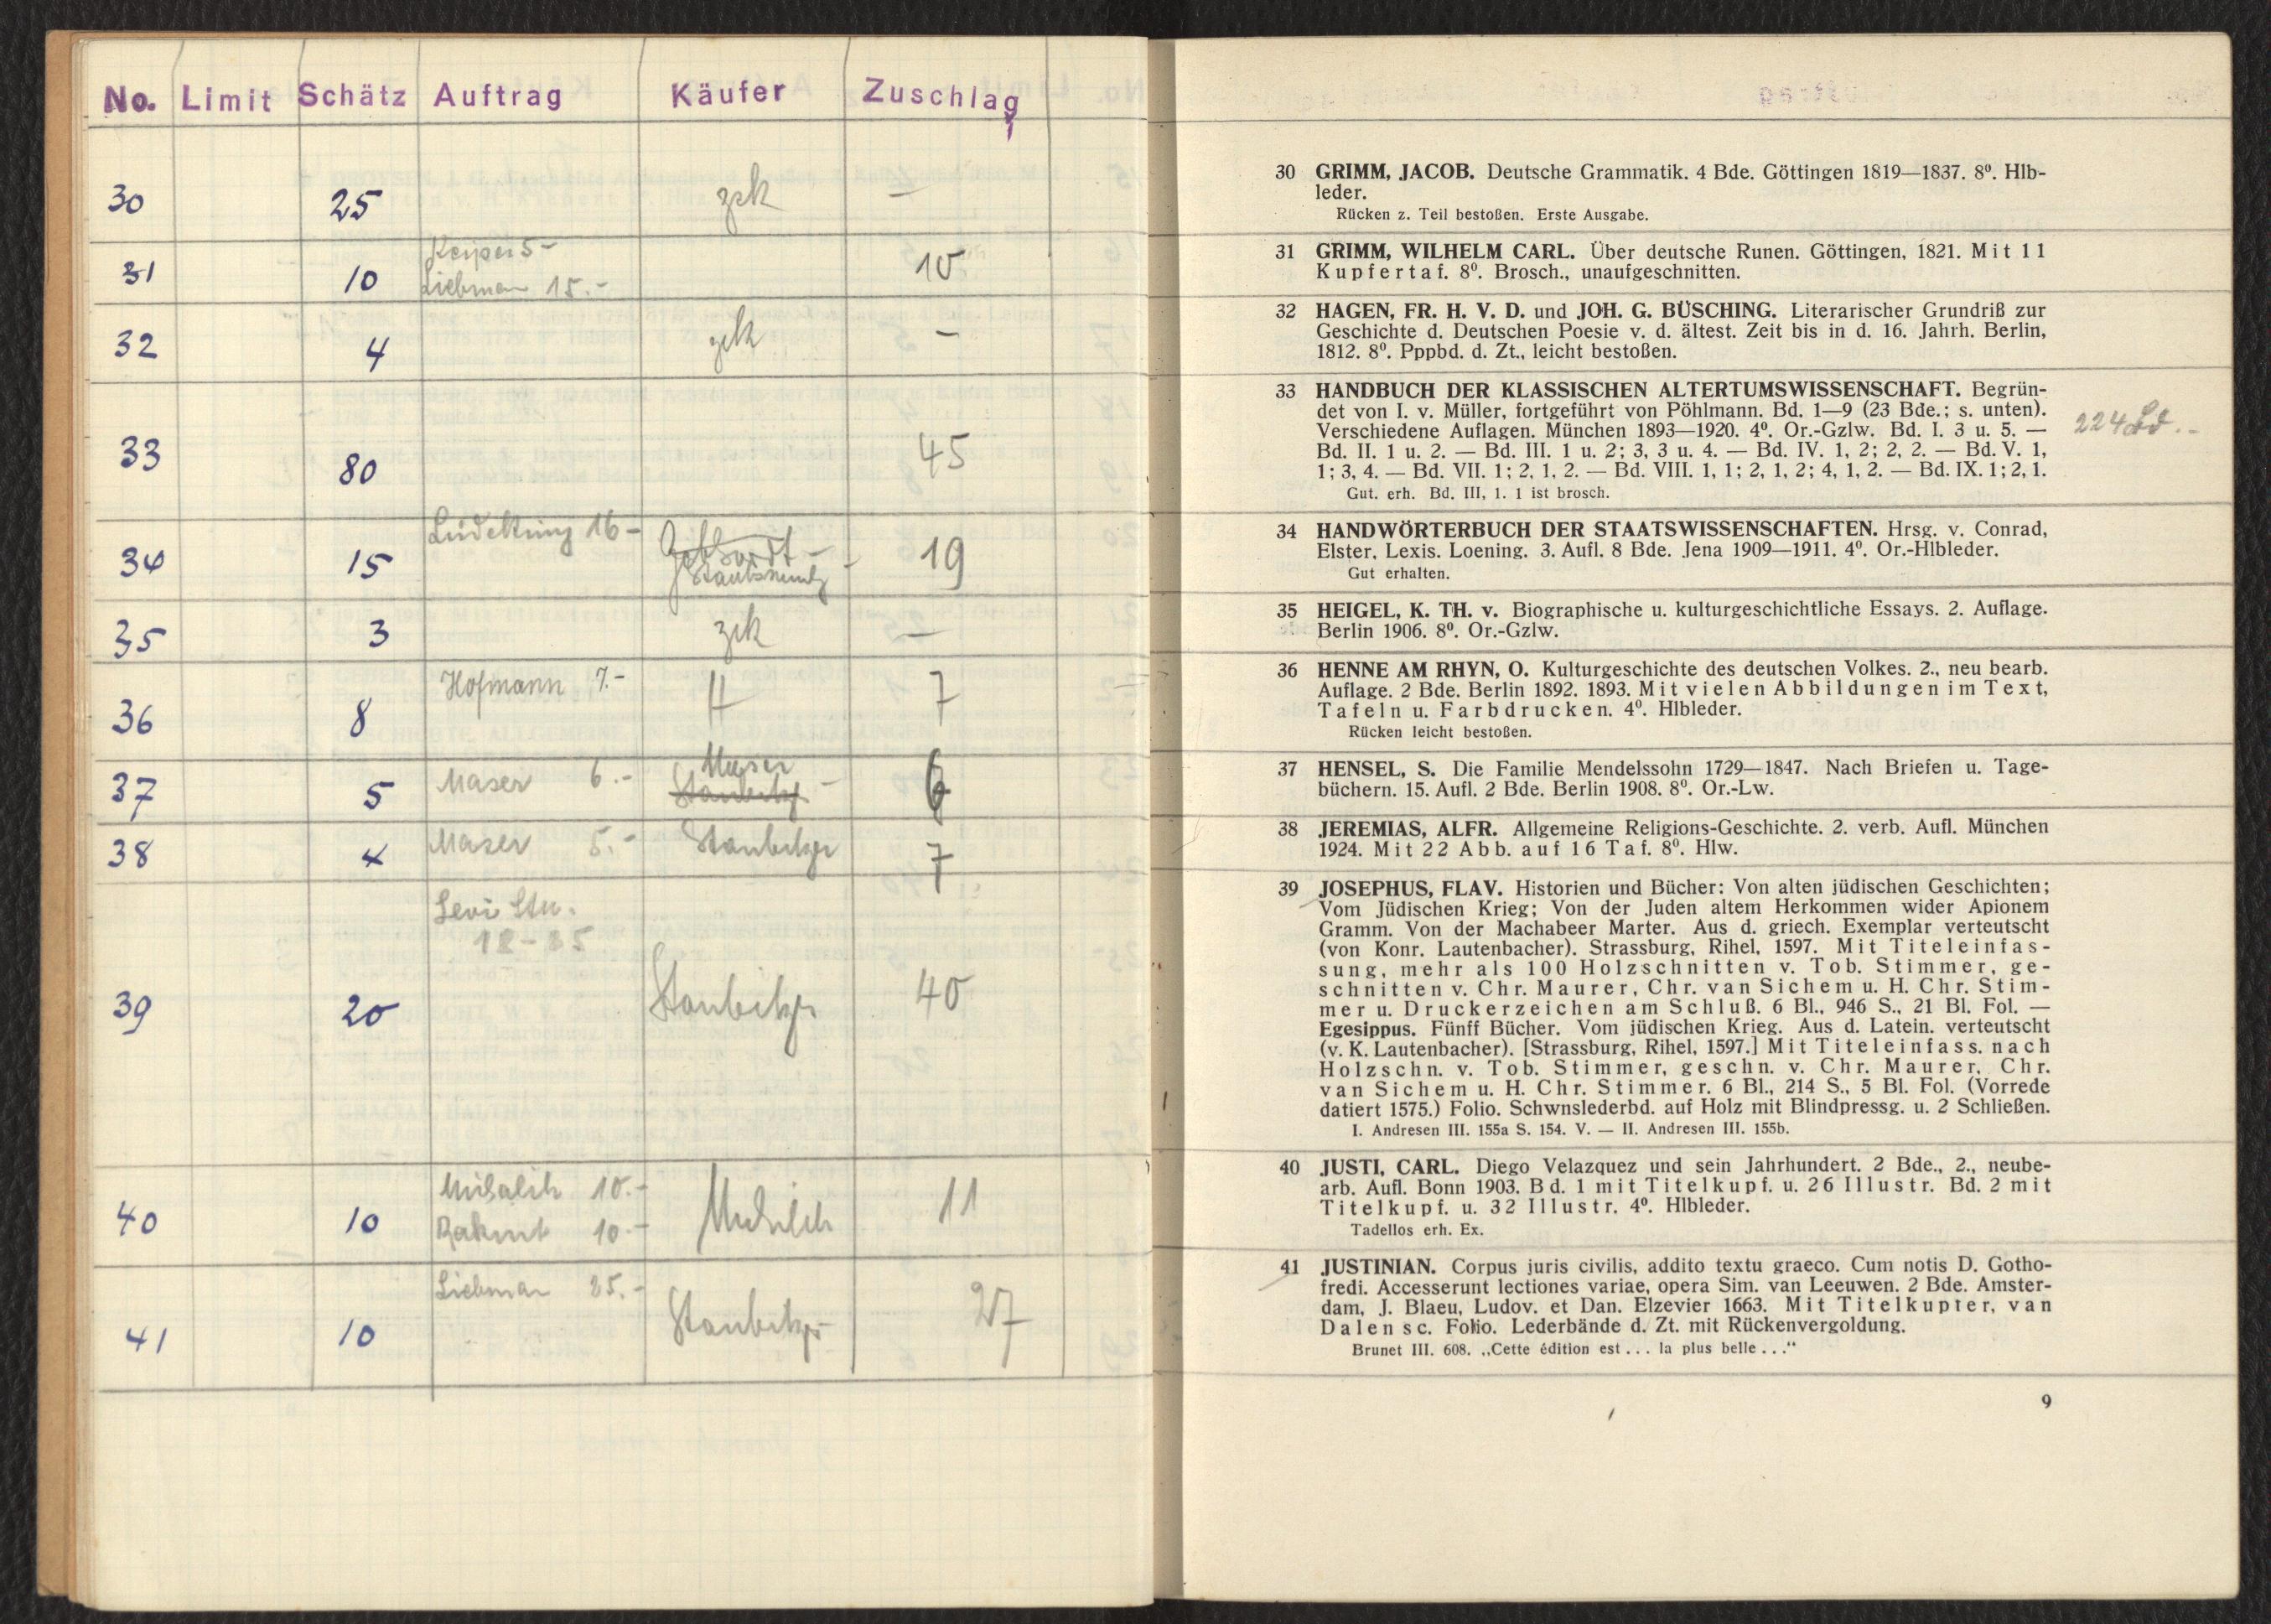 No. Limit Schätz Auftrag Käufer Zuschlag
30 25 zrk —
31 10 Keiper 5-
Liebman 15.- 10
32 4 zrk —
33 80 45
34 15 16- 19
35 3 zrk —
36 8 Hofmann 7.- H 7
37 5 Maser 6.- Maser 6
38 4 Maser 5.- Staubitzer 7
39 20 Levi Stu. Staubitzer 40
40 10 10.- 11
10.-
41 10 Liebman 25.- Staubitzer 27
30 GRIMM, JACOB. Deutsche Grammatik. 4 Bde. Göttingen 1819—1837. 8⁰. Hlb-
leder.
Rücken z. Teil bestoßen. Erste Ausgabe.
31 GRIMM, WILHELM CARL. Über deutsche Runen. Göttingen, 1821. Mit 11
Kupfertaf. 8⁰. Brosch., unaufgeschnitten.
32 HAGEN, FR. H. V. D. und JOH. G. BÜSCHING. Literarischer Grundriß zur
Geschichte d. Deutschen Poesie v. d. ältest. Zeit bis in d. 16. Jahrh. Berlin,
1812. 8⁰. Pppbd. d. Zt., leicht bestoßen.
33 HANDBUCH DER KLASSISCHEN ALTERTUMSWISSENSCHAFT. Begrün-
det von I. v. Müller, fortgeführt von Pöhlmann. Bd. 1—9 (23 Bde.; s. unten).
Verschiedene Auflagen. München 1893—1920. 4⁰. Or.-Gzlw. Bd. I. 3 u. 5. —
Bd. II. 1 u. 2. — Bd. III. 1 u. 2; 3, 3 u. 4. — Bd. IV. 1, 2; 2, 2. — Bd. V. 1,
1; 3, 4. — Bd. VII. 1; 2, 1, 2. — Bd. VIII. 1, 1; 2, 1, 2; 4, 1, 2. — Bd. IX. 1; 2, 1.
Gut. erh. Bd. III, 1. 1 ist brosch.
224
34 HANDWÖRTERBUCH DER STAATSWISSENSCHAFTEN. Hrsg. v. Conrad,
Elster, Lexis. Loening. 3. Aufl. 8 Bde. Jena 1909—1911. 4⁰. Or.-Hlbleder.
Gut erhalten.
35 HEIGEL, K. TH. v. Biographische u. kulturgeschichtliche Essays. 2. Auflage.
Berlin 1906. 8⁰. Or.-Gzlw.
36 HENNE AM RHYN, O. Kulturgeschichte des deutschen Volkes. 2., neu bearb.
Auflage. 2 Bde. Berlin 1892. 1893. Mit vielen Abbildungen im Text,
Tafeln u. Farbdrucken. 4⁰. Hlbleder.
Rücken leicht bestoßen.
37 HENSEL, S. Die Familie Mendelssohn 1729—1847. Nach Briefen u. Tage-
büchern. 15. Aufl. 2 Bde. Berlin 1908. 8⁰. Or.-Lw.
38 JEREMIAS, ALFR. Allgemeine Religions-Geschichte. 2. verb. Aufl. München
1924. Mit 22 Abb. auf 16 Taf. 8⁰. Hlw.
39 JOSEPHUS, FLAV. Historien und Bücher: Von alten jüdischen Geschichten;
Vom Jüdischen Krieg; Von der Juden altem Herkommen wider Apionem
Gramm. Von der Machabeer Marter. Aus d. griech. Exemplar verteutscht
(von Konr. Lautenbacher). Strassburg, Rihel, 1597. Mit Titeleinfas-
sung, mehr als 100 Holzschnitten v. Tob. Stimmer, ge-
schnitten v. Chr. Maurer, Chr. van Sichem u. H. Chr. Stim-
mer u. Druckerzeichen am Schluß. 6 Bl., 946 S., 21 Bl. Fol. —
Egesippus. Fünff Bücher. Vom jüdischen Krieg. Aus d. Latein. verteutscht
(v. K. Lautenbacher). [Strassburg, Rihel, 1597.] Mit Titeleinfass. nach
Holzschn. v. Tob. Stimmer, geschn. v. Chr. Maurer, Chr.
van Sichem u. H. Chr. Stimmer. 6 Bl., 214 S., 5 Bl. Fol. (Vorrede
datiert 1575.) Folio. Schwnslederbd. auf Holz mit Blindpressg. u. 2 Schließen.
I. Andresen III. 155a S. 154. V. — II. Andresen III. 155b.
40 JUSTI, CARL. Diego Velazquez und sein Jahrhundert. 2 Bde., 2., neube-
arb. Aufl. Bonn 1903. Bd. 1 mit Titelkupf. u. 26 Illustr. Bd. 2 mit
Titelkupf. u. 32 Illustr. 4⁰. Hlbleder.
Tadellos erh. Ex.
41 JUSTINIAN. Corpus juris civilis, addito textu graeco. Cum notis D. Gotho-
fredi. Accesserunt lectiones variae, opera Sim. van Leeuwen. 2 Bde. Amster-
dam, J. Blaeu, Ludov. et Dan. Elzevier 1663. Mit Titelkupfer, van
Dalen sc. Folio. Lederbände d. Zt. mit Rückenvergoldung.
Brunet III. 608. „Cette édition est . . . la plus belle . . .“
9